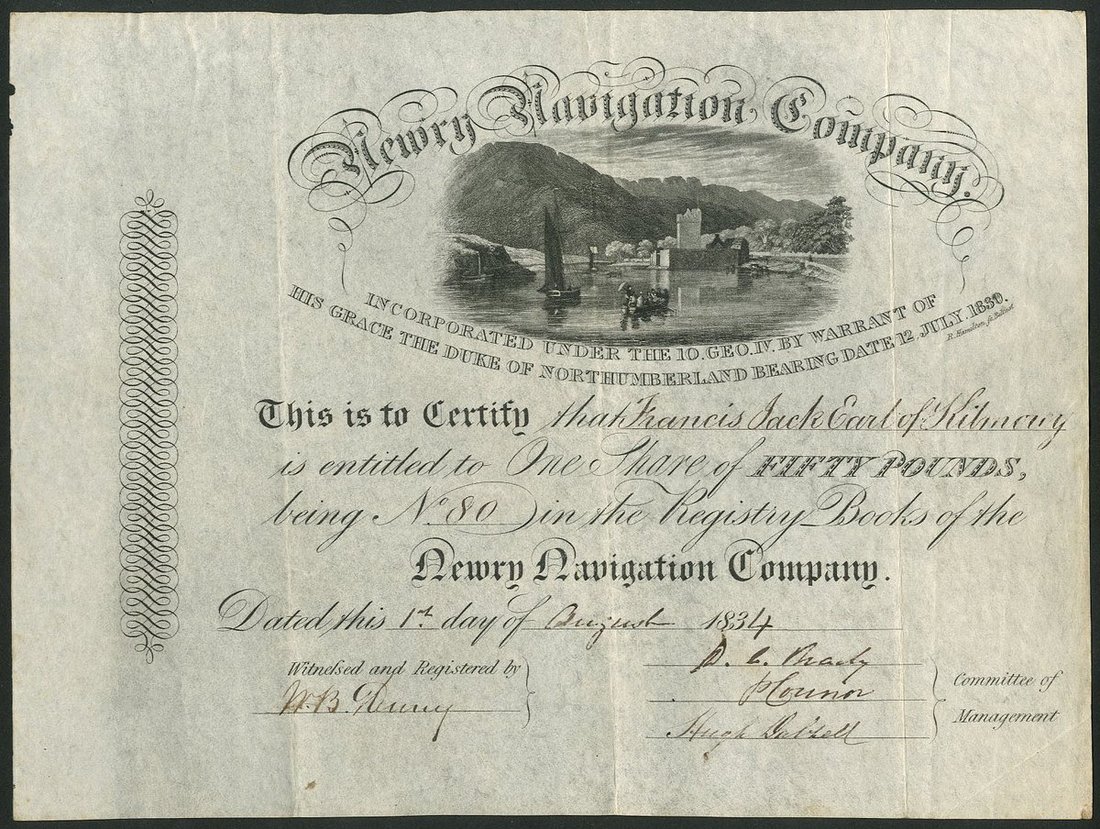 Newry Navigation Company.
INCORPORATED UNDER THE 10. GEO. IV. BY WARRANT OF
HIS GRACE THE DUKE OF NORTHUMBERLAND BEARING DATE 12 JULY. 1830.
This is to Certify that Francis Jack Earl of Kilmorey
is entitled to One Share of FIFTY POUNDS,
being No. 80 in the Registry Books of the
Newry Navigation Company.
Dated this 1st day of August 1834
Witnessed and Registered by
D. C. Brady
W. B.
P Connor
Committee of
Management
Hugh Dalzell